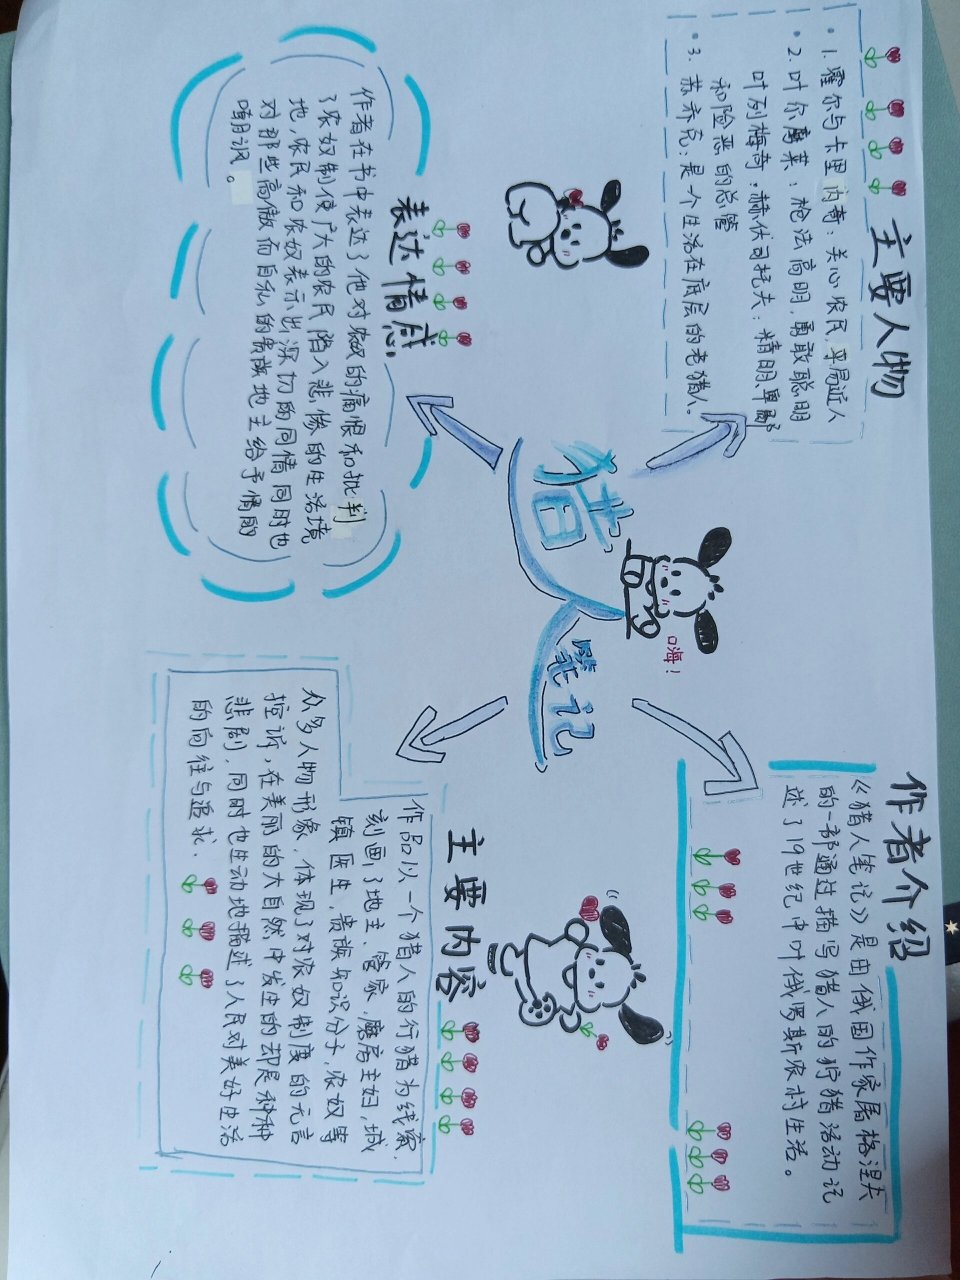 主要人物
1. 霍尔与卡里内奇：关心农民，平易近人
2. 叶尔磨莱：枪法高明，勇敢聪明
叶列梅奇·赫伏司托夫：精明、卑鄙
和险恶的总管
3. 苏乔克：是个生活在底层的老猎人。
作者介绍
《猎人笔记》是由俄国作家屠格涅夫
的一部通过描写猎人的狩猎活动记
述了19世纪中叶俄罗斯农村生活。
嗨！
猎人
笔记
表达情感
作者在书中表达了他对农奴的痛恨和批判
了农奴制使广大的农民陷入悲惨的生活境
地，农民和农奴表示出深切的同情同时也
对那些高傲而自私的贵族地主给予情的
嘲讽。
主要内容
作品以一个猎人的行猎为线索，
刻画了地主、管家、磨房主妇，城
镇医生，贵族知识分子，农奴等
众多人物形象，体现了对农奴制度的无言
控诉，在美丽的大自然中发生的却是种种
悲剧，同时也生动地描述了人民对美好生活
的向往与追求.